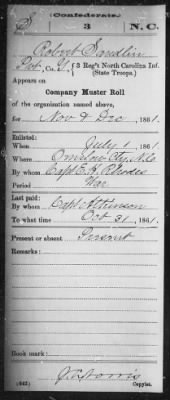 Confederate.
S 3 N.C.
Robert Sandlin
Pvt, Co. G, 3 Reg't North Carolina Inf.
(State Troops.)
Appears on
Company Muster Roll
of the organization named above,
for Nov & Dec, 1861.
Enlisted:
When July 1, 1861.
Where Onslow Cty, N.C.
By whom Capt E. H. Rhodes
Period War
Last paid:
By whom Capt. Atkinson
To what time Oct 31, 1861.
Present or absent Present
Remarks:
Book mark:
(642)
Copyist.